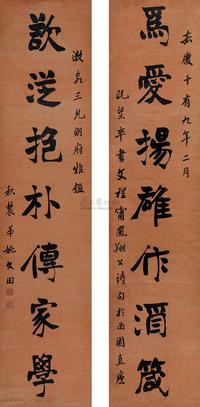 爲愛揚雄作酒箴
嘉慶十有九年二月
既望卒書文程甫鳳翔公詩句於西園直廬
歆從抱朴傳家學
漱泉三兄明府雅鑑
秋農弟姚文田